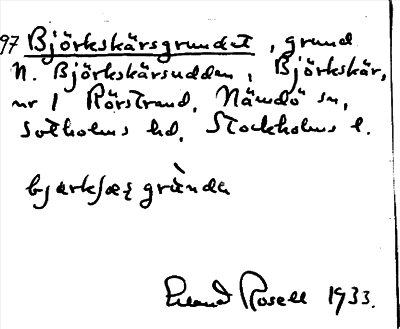 97 Björkskärsgrundet, grund
N. Björkskärsudden, Björkskär,
nr 1 Rörstrand, Nämdö sn,
Sotholms hd, Stockholms l.
bjørkʃæʒ grùndə
Erland Rosell 1933.